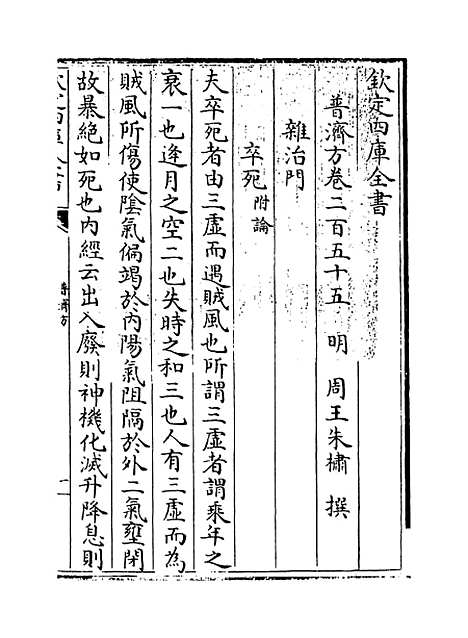 欽定四庫全書
普濟方卷二百五十五 明 周王朱橚 撰
雜治門
卒死 附論
夫卒死者由三虛而遇賊風也所謂三虛者謂乘年之
衰一也逢月之空二也失時之和三也人有三虛而為
賊風所傷使陰氣偏竭於内陽氣阻隔於外二氣壅閉
故暴絶如死也内經云出入廢則神機化滅升降息則
普濟方